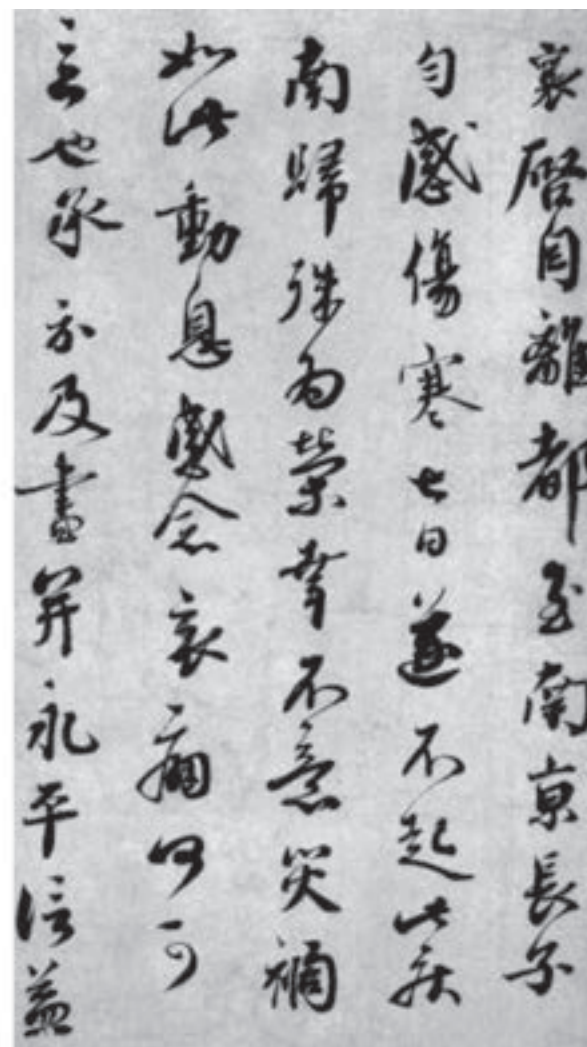 襄啓自離都至南京長子
勻感傷寒七日遂不起此疾
南歸殊為榮幸不意災禍
如此動息感念哀痛何可
言也承示及書并永平信益